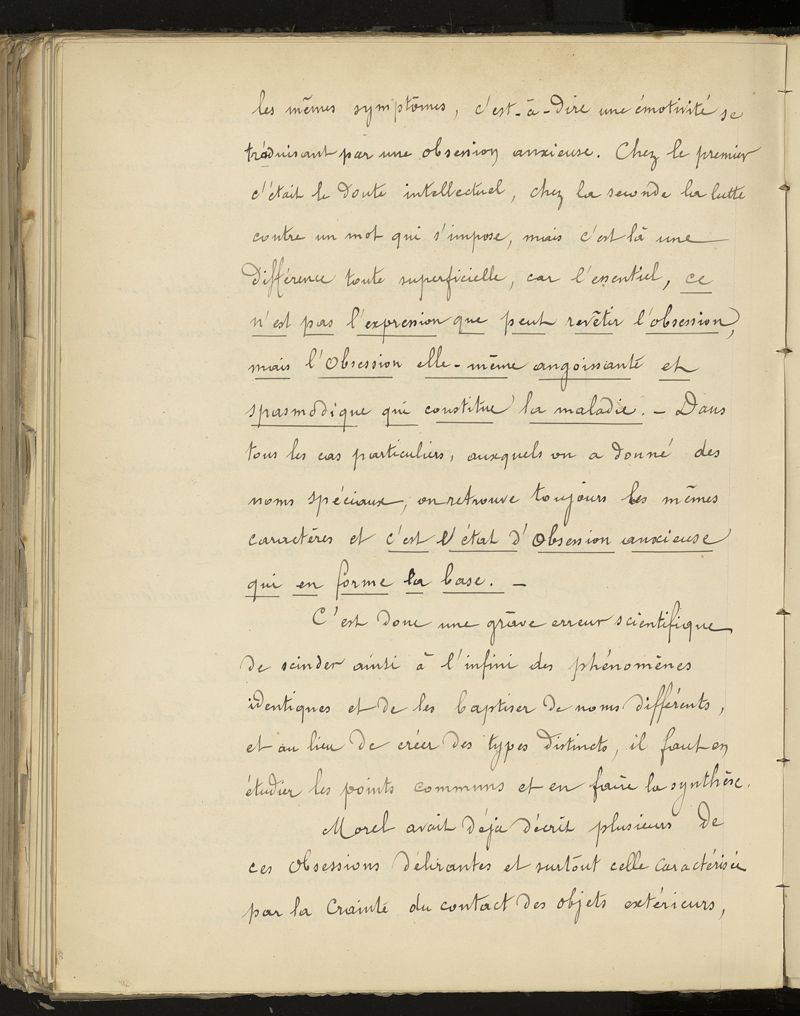 les mêmes symptômes, c'est-à-dire une émotivité se
traduisant par une obsession anxieuse. Chez le premier
c'était le doute intellectuel, chez la seconde la lutte
contre un mot qui s'impose, mais c'est là une
différence toute superficielle, car l'essentiel, ce
n'est pas l'expression que peut revêtir l'obsession,
mais l'Obsession elle-même angoissante et
spasmodique qui constitue la maladie. — Dans
tous les cas particuliers, auxquels on a donné des
noms spéciaux, on retrouve toujours les mêmes
caractères et c'est l'état d'Obsession anxieuse
qui en forme la base. —
C'est donc une grave erreur scientifique
de scinder ainsi à l'infini des phénomènes
identiques et de les baptiser de noms différents,
et au lieu de créer des types distincts, il faut en
étudier les points communs et en faire la synthèse.
Morel avait déjà décrit plusieurs de
ces Obsessions délirantes et surtout celle caractérisée
par la Crainte du contact des objets extérieurs,